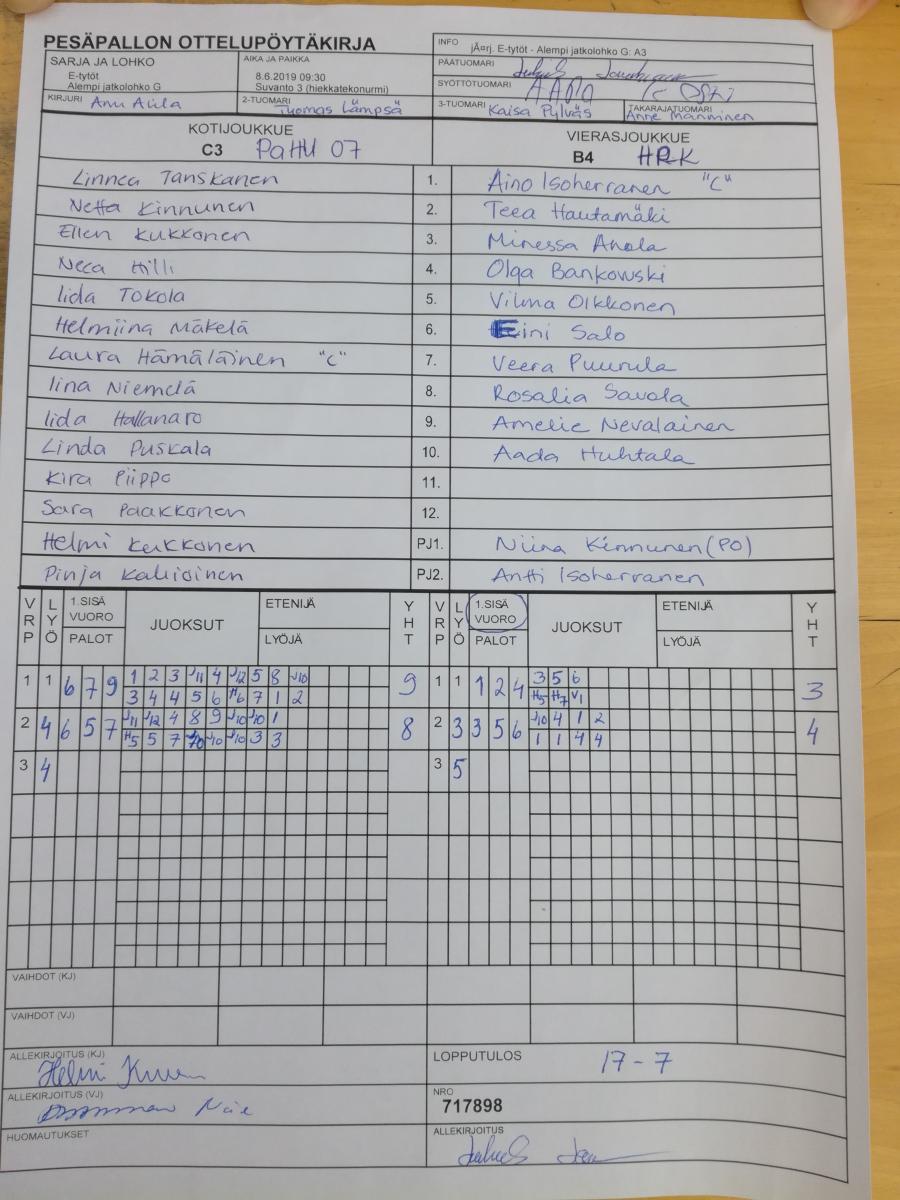 PESÄPALLON OTTELUPÖYTÄKIRJA
INFO jÃ¤rj. E-tytöt - Alempi jatkolohko G: A3
SARJA JA LOHKO
E-tytöt
Alempi jatkolohko G
AIKA JA PAIKKA
8.6.2019 09:30
Suvanto 3 (hiekkatekonurmi)
PÄÄTUOMARI
SYÖTTÖTUOMARI
KIRJURI Anu Aula
2-TUOMARI Tuomas Lämpsä
3-TUOMARI Kaisa Pylväs
TAKARAJATUOMARI Anne Manninen
KOTIJOUKKUE
C3 PaHU 07
VIERASJOUKKUE
B4 HRK
Linnea Tanskanen 1. Aino Isoherranen "C"
Netta Kinnunen 2. Teea Hautamäki
Ellen Kukkonen 3. Minessa Anola
Neea Hilli 4. Olga Bankowski
Iida Tokola 5. Vilma Olkkonen
Helmiina Mäkelä 6. Eini Salo
Laura Hämäläinen "C" 7. Veera Puurula
Iina Niemelä 8. Rosalia Savola
Iida Hallanaro 9. Amelie Nevalainen
Linda Puskala 10. Aada Huhtala
Kira Piippo 11.
Sara Paakkonen 12.
Helmi Kukkonen PJ1. Niina Kinnunen (PO)
Pinja Kallioinen PJ2. Antti Isoherranen
VRP LYÖ 1.SISÄ VUORO PALOT JUOKSUT ETENIJÄ LYÖJÄ YHT VRP LYÖ 1.SISÄ VUORO PALOT JUOKSUT ETENIJÄ LYÖJÄ YHT
1 1 6 7 9 1 2 3 J11 4 J12 5 8 J10 9 1 1 1 2 4 3 5 6 3
3 4 4 5 6 H6 7 1 2 H5 H7 V1
2 4 6 5 7 J11 J12 4 8 9 J10 J10 1 8 2 3 3 5 6 J10 4 1 2 4
H5 5 7 J10 J10 J10 3 3 1 1 4 4
3 4 3 5
VAIHDOT (KJ)
VAIHDOT (VJ)
ALLEKIRJOITUS (KJ)
LOPPUTULOS 17 - 7
ALLEKIRJOITUS (VJ)
NRO
717898
HUOMAUTUKSET
ALLEKIRJOITUS